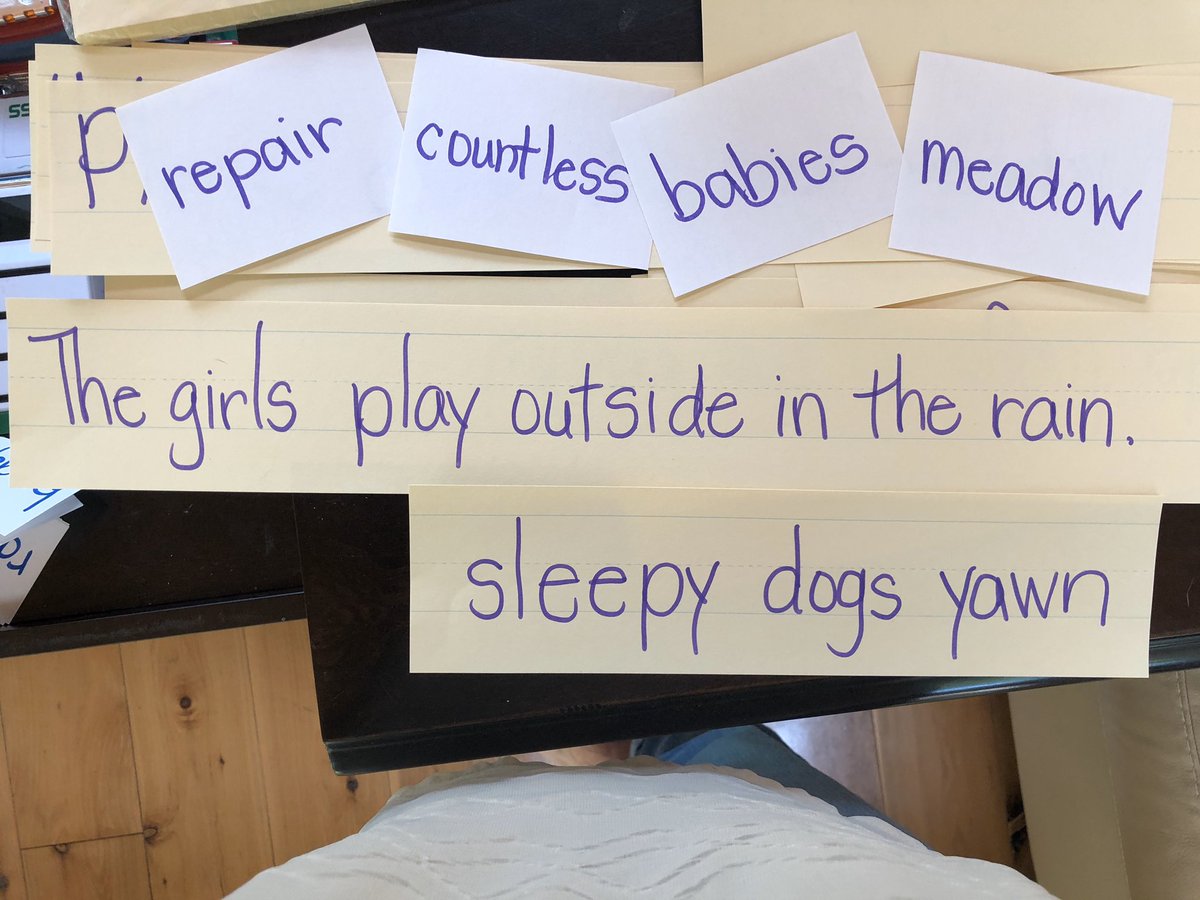 repair
countless
babies
meadow
The girls play outside in the rain.
sleepy dogs yawn